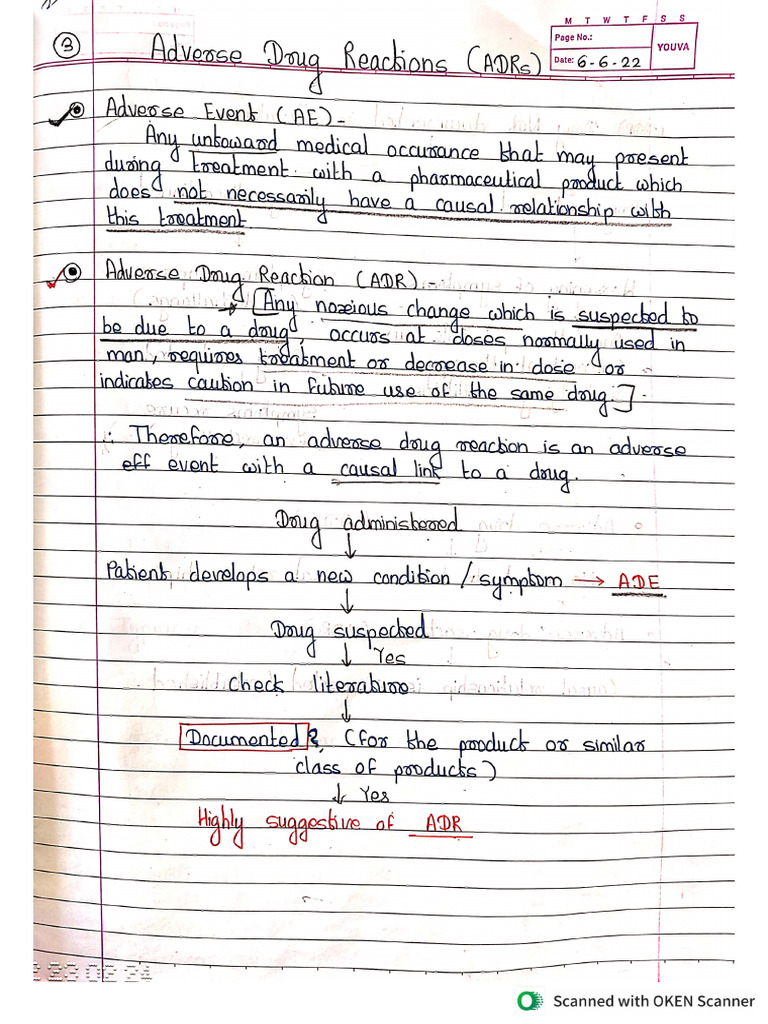 M T W T F S S
Page No.:
YOUVA
Date: 6-6-22
3
Adverse Drug Reactions (ADRs)
Adverse Event (AE)-
Any untoward medical occurance that may present
during treatment with a pharmaceutical product which
does not necessarily have a causal relationship with
this treatment.
Adverse Drug Reaction (ADR)-
→ [Any noxious change which is suspected to
be due to a drug, occurs at doses normally used in
man, requires treatment or decrease in dose or
indicates caution in future use of the same drug.]
∴ Therefore, an adverse drug reaction is an adverse
eff event with a causal link to a drug.
Drug administered
↓
Patient develops a new condition / symptom → ADE
↓
Drug suspected
↓ Yes
Check literature
↓
Documented? (for the product or similar
class of products)
↓ Yes
Highly suggestive of ADR
Scanned with OKEN Scanner